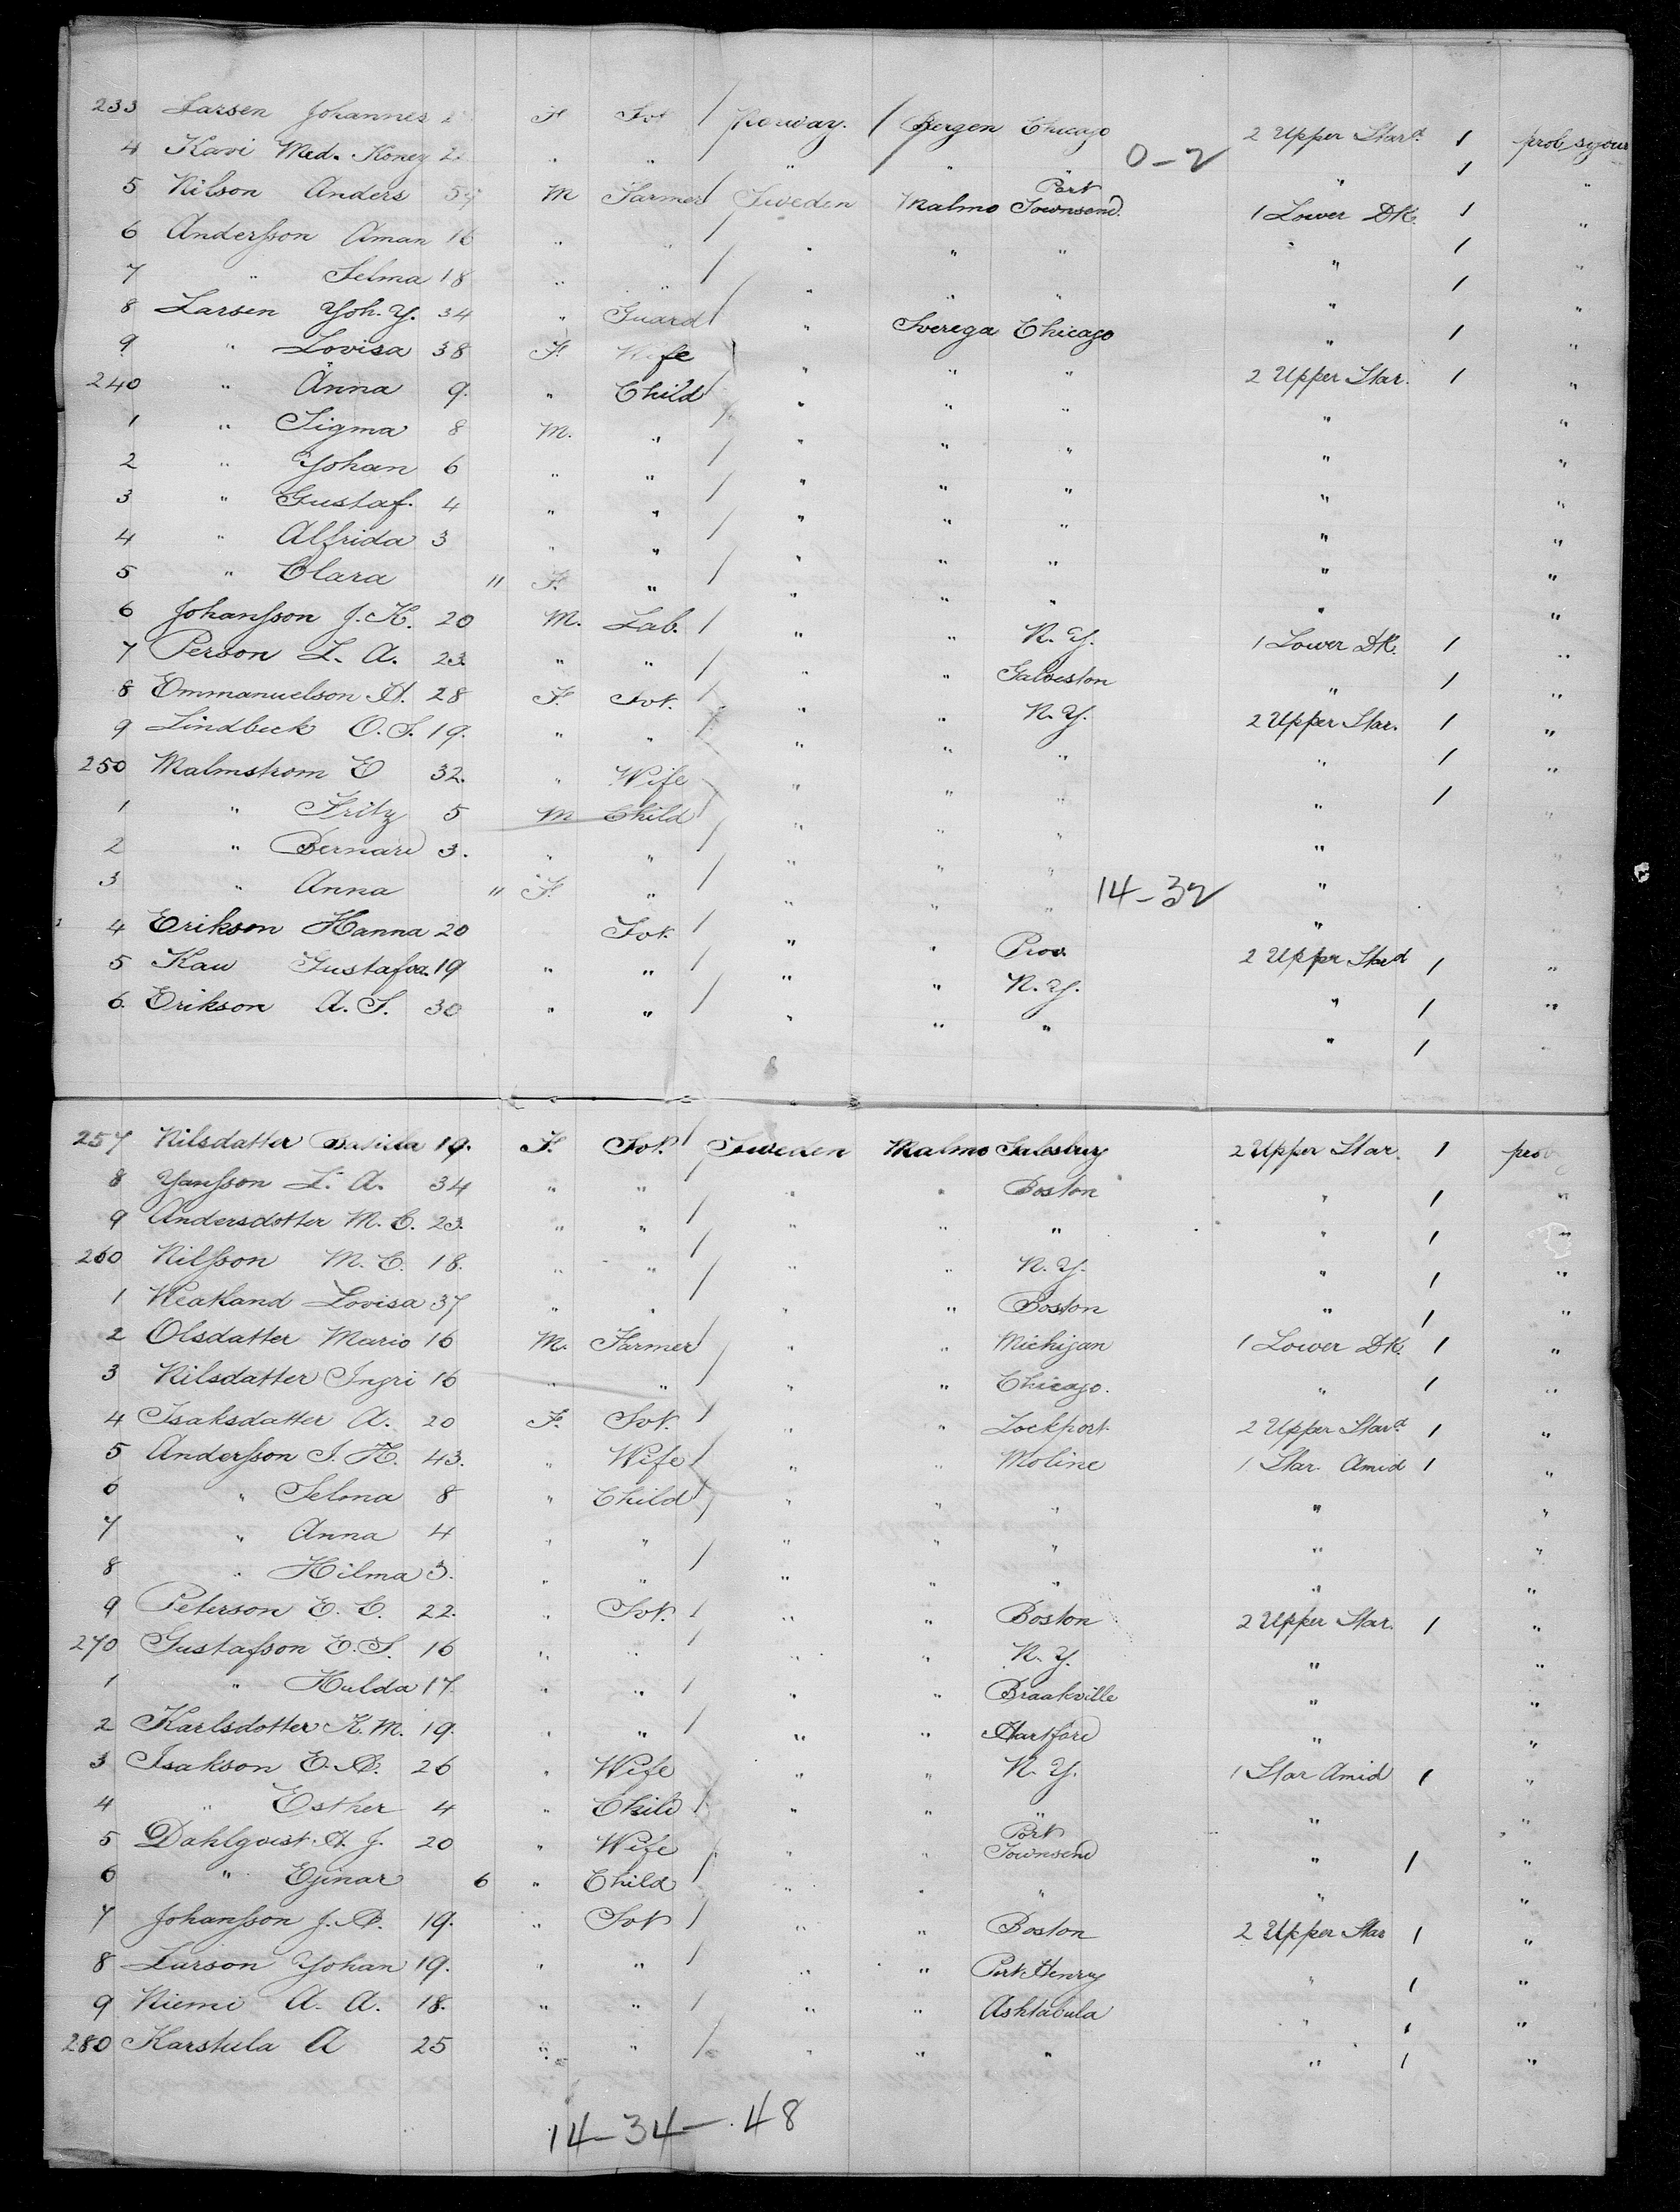 233 Larsen Johannes F Svt. / Norway. / Bergen Chicago 2 Upper Star.d 1 prob sejour
4 Kari Med. Koney " " / " " " " 1 "
0-2
5 Nilson Anders M Farmer / Sweden Malmo Port Townsend. 1 Lower DK. 1 "
6 Andersson Aman 16 " " " " " " 1 "
7 " Selma 18 " " / " " " " 1 "
8 Larsen Yoh. Y. 34 " Guard / " Sverega Chicago " 1 "
9 " Lovisa 38 F. Wife / " " " 2 Upper Star. 1 "
240 " Anna 9. " Child / " " " " "
1 " Sigma 8 M. " / " " " " "
2 " Yohan 6 " " / " " " " "
3 " Gustaf. 4 " " / " " " " "
4 " Alfrida 3 " " / " " " " "
5 " Clara " F. " / " " " " "
6 Johansson J. K. 20 M. Lab. / " " N. Y. 1 Lower DK. 1 "
7 Person L. A. 23. " " / " " Galveston " 1 "
8 Emmanuelson H. 28 F. Svt. / " " N. Y. 2 Upper Star. 1 "
9 Lindbeck O. S. 19. " " / " " " " 1 "
250 Malmstrom E 32. " Wife " " " " 1 "
1 " Fritz 5 M Child / " " " " "
2 " Bernard 3. " " / " " " " "
3 " Anna " F. " / " " " "
14-32
4 Erikson Hanna 20 Svt. / " " Prov. 2 Upper Stard 1 "
5 Kau Gustafva. 19 " " / " " N. Y. " 1 "
6. Erikson A. S. 30 " " / " " " " 1 "
257 Nilsdatter 19. F. Svt. / Sweden Malmo Galesburg 2 Upper Star. 1 prob
8 Yansson L. A. 34 " " / " " Boston " 1 "
9 Andersdotter M. C. 23. " " / " " " " 1 "
260 Nilsson M. C. 18. " " / " " N. Y. " 1 "
1 Weakland Lovisa 37 " " " " Boston " 1 "
2 Olsdatter Mario 16 M. Farmer / " " Michigan 1 Lower DK. 1 "
3 Nilsdatter Ingri 16 " " / " " Chicago. " 1 "
4 Isaksdatter A. 20 F. Svt. / " " Lockport 2 Upper Star.d 1 "
5 Andersson I. H. 43. " Wife / " " Moline 1 Star. Amid 1 "
6 " Selma 8 " Child / " " " " "
7 " Anna 4 " " " " " " "
8 " Hilma 3. " " / " " " " "
9 Peterson E. C. 22. " Svt. / " " Boston 2 Upper Star. 1 "
270 Gustafson E. S. 16 " " / " " N. Y. " "
1 " Hulda 17. " " / " " Braakville " "
2 Karlsdotter K. M. 19. " " / " " Hartford " "
3 Isakson E. B. 26 " Wife " " N. Y. 1 Star Amid 1 "
4 " Esther 4 " Child / " " " "
5 Dahlqvist. H. J. 20 " Wife / " " Port Townsend " 1 "
6 " Ejinar 6 " Child / " " " " "
7 Johansson J. B. 19. " Svt / " " Boston 2 Upper Star 1 "
8 Larson Yohan 19. " " / " " Port Henry " 1 "
9 Niemi A. A. 18. " " / " " Ashtabula " 1 "
280 Karstula A 25 " " / " " " " 1 "
14-34-48